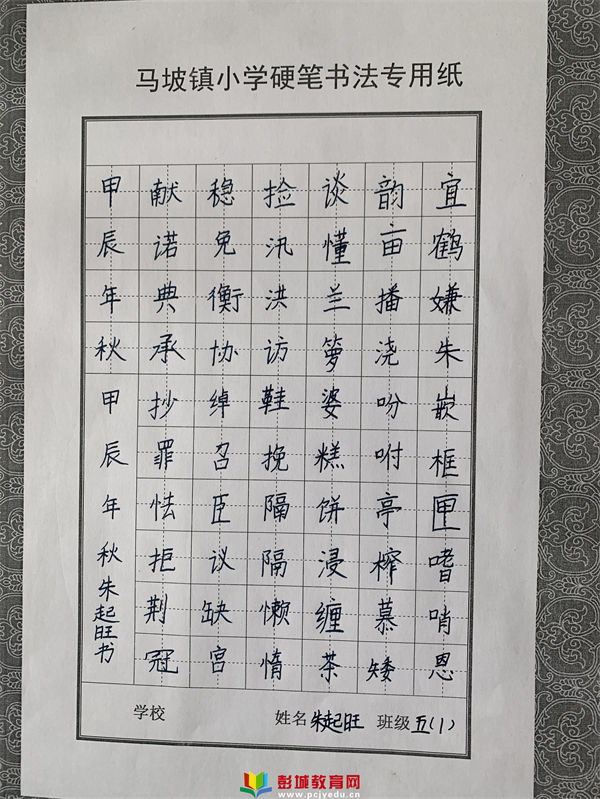 马坡镇小学硬笔书法专用纸
宜鹤嫌朱嵌框匣嗜哨恩
韵亩播浇吩咐亭榨慕矮
谈懂兰箩婆糕饼浸缠茶
捡汛洪访鞋挽隔隔懒惰
稳免衡协绰召臣议缺宫
献诺典承抄罪怯拒荆冠
甲辰年秋甲辰年秋朱起旺书
学校 姓名 朱起旺 班级 五(1)
彭城教育网
www.pcjyedu.cn